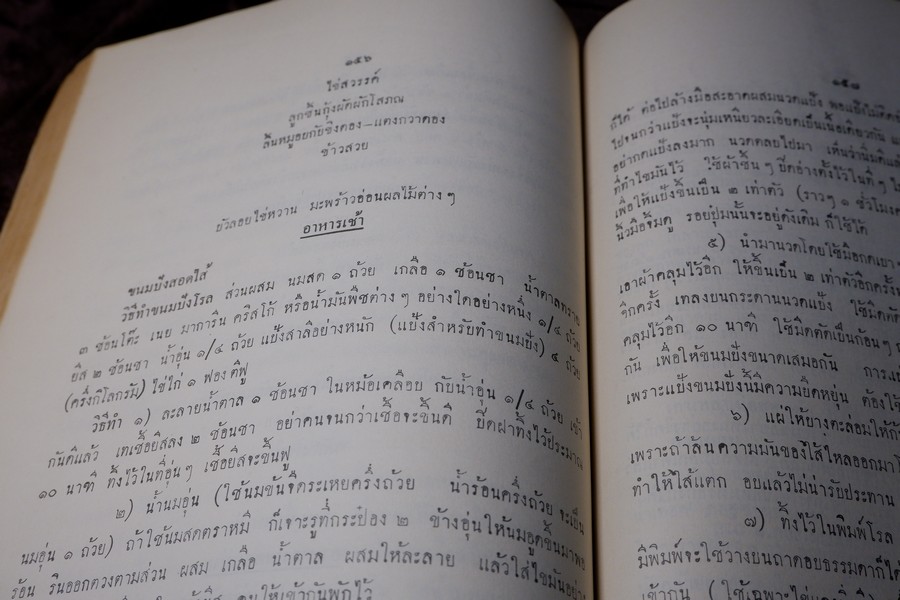 ๑๕๖
ไข่สวรรค์
ลูกชิ้นกุ้งผัดผักโสภณ
ลิ้นหมูอยกับขิงดอง—แตงกวาดอง
ข้าวสวย
บัวลอยไข่หวาน มะพร้าวอ่อนผลไม้ต่าง ๆ
อาหารเช้า
ขนมปังสอดไส้
วิธีทำขนมปังโรล ส่วนผสม นมสด ๑ ถ้วย เกลือ ๑ ช้อนชา น้ำตาลทราย
๓ ช้อนโต๊ะ เนย มาการีน คริสโก้ หรือน้ำมันพืชต่าง ๆ อย่างใดอย่างหนึ่ง ๑/๔ ถ้วย
ยีส ๒ ช้อนชา น้ำอุ่น ๑/๔ ถ้วย แป้งสาลีอย่างหนัก (แป้งสำหรับทำขนมปัง) ๔ ถ้วย
(ครึ่งกิโลกรัม) ไข่ไก่ ๑ ฟอง ตีฟู
วิธีทำ ๑) ละลายน้ำตาล ๑ ช้อนชา ในหม้อเคลือบ กับน้ำอุ่น ๑/๔ ถ้วย เข้า
กันดีแล้ว เทเชื้อยีสลง ๒ ช้อนชา อย่าคนจนกว่าเชื้อจะขึ้นดี ปิดฝาทิ้งไว้ประมาณ
๑๐ นาที ทิ้งไว้ในที่อุ่นๆ เชื้อยีสจะขึ้นฟู
๒) น้ำนมอุ่น (ใช้นมข้นจืดระเหยครึ่งถ้วย น้ำร้อนครึ่งถ้วย จะเป็น
นมอุ่น ๑ ถ้วย) ถ้าใช้นมสดตราหมี ก็เจาะรูที่กระป๋อง ๒ ข้างอุ่นให้นมอูดขึ้นมาพอ
ร้อน รินออกตวงตามส่วน ผสม เกลือ น้ำตาล ผสมให้ละลาย แล้วใส่ไขมันอย่าง
คนให้เข้ากันพักไว้
๑๕๗
ก็ได้ ต่อไปล้างมือสะอาดผสมนวดแป้ง พอแป้งไม่ติด
ไปจนกว่าแป้งจะนุ่มเหนียวละเอียดเป็นเนื้อเดียวกัน
อย่ากดแป้งลงมาก นวดตลบไปมา เห็นว่านิ่มดี
ที่ทำไขมันไว้ ใช้ผ้าชื้น ๆ ปิดอ่างตั้งไว้ในที่
เพื่อให้แป้งขึ้นเป็น ๒ เท่าตัว (ราว ๆ ๑ ชั่วโมง
นิ้วมือจิ้มดู รอยปุ๋มนั้นจะอยู่คงเดิม ก็ใช้ได้
๕) นำมานวดโดยใช้มือกดเบา
เอาผ้าคลุมไว้อีก ให้ขึ้นเป็น ๒ เท่าตัวอีกครั้ง
อีกครั้ง เทลงบนกระดานนวดแป้ง ใช้มีดตัด
คลุมไว้อีก ๑๐ นาที ใช้มีดตัดเป็นก้อนๆ
กัน เพื่อให้ขนมปังขนาดเสมอกัน การ
เพราะแป้งขนมปังนี้มีความยืดหยุ่น ต้องใช้
๖) แผ่ให้บางตะล่อมให้
เพราะถ้าล้นความมันของไส้ไหลออกมา
ทำให้ไส้แตก อบแล้วไม่น่ารับประทาน
๗) ทิ้งไว้ในพิมพ์โรล
มีพิมพ์จะใช้วางบนถาดอบธรรมดาก็ได้
เข้ากัน (ใช้เฉพาะไข่แดง